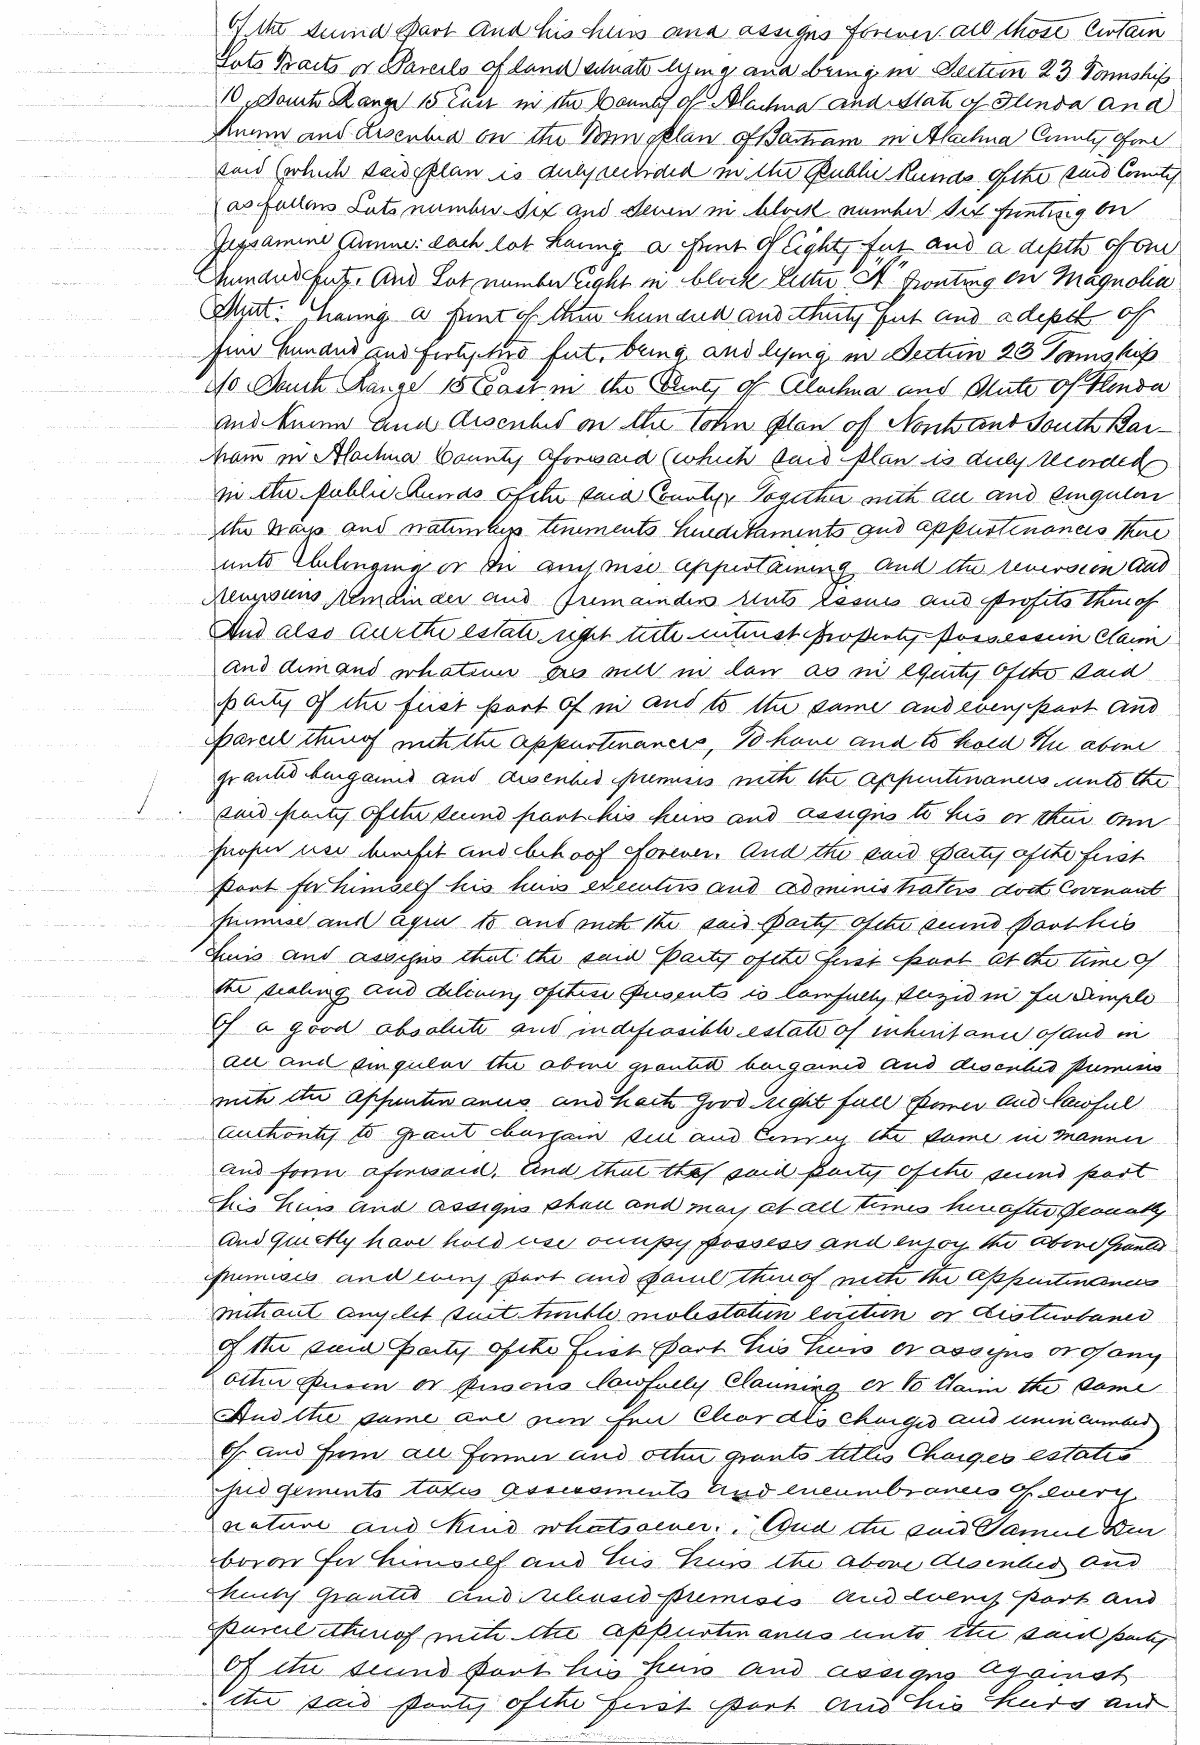 of the second part and his heirs and assigns forever all those certain
Lots Tracts or Parcels of land situate lying and being in Section 23 Township
10 South Range 15 East in the County of Alachua and State of Florida and
Known and described on the Town plan of Bartram in Alachua County afore
said (which said plan is duly recorded in the Public Records of the said County
as follows Lots number Six and Seven in block number Six fronting on
Jessamine Avenue: each lot having a front of Eighty feet and a depth of one
hundred feet. And Lot number Eight in block letter "A" fronting on Magnolia
Street: having a front of three hundred and thirty feet and a depth of
five hundred and forty two feet. being and lying in Section 23 Township
10 South Range 15 East in the County of Alachua and State of Florida
and Known and described on the town plan of North and South Bar-
tram in Alachua County aforesaid (which said plan is duly recorded
in the public Records of the said County) Together with all and singular
the ways and waterways tenements hereditaments and appurtenances there
unto belonging or in any wise appertaining and the reversion and
reversions remainder and remainders rents issues and profits thereof
And also all the estate right title interest property possession claim
and demand whatsoever as well in law as in equity of the said
party of the first part of in and to the same and every part and
parcel thereof with the appurtenances, To have and to hold the above
granted bargained and described premises with the appurtenances unto the
said party of the second part his heirs and assigns to his or their own
proper use benefit and behoof forever. And the said party of the first
part for himself his heirs executors and administrators doth Covenant
promise and agree to and with the said Party of the second part his
heirs and assigns that the said Party of the first part at the time of
the sealing and delivery of these presents is lawfully seized in fee simple
of a good absolute and indefeasible estate of inheritance of and in
all and singular the above granted bargained and described premises
with the appurtenances and hath good right full power and lawful
authority to grant bargain sell and convey the same in manner
and form aforesaid. And that the said party of the second part
his heirs and assigns shall and may at all times hereafter peaceably
and quietly have hold use occupy possess and enjoy the above granted
premises and every part and parcel thereof with the appurtenances
without any let suit trouble molestation eviction or disturbance
of the said Party of the first Part his heirs or assigns or of any
other person or persons lawfully Claiming or to Claim the same
And the same are now free Clear discharged and unincumbered
of and from all former and other grants titles Charges estates
judgements taxes assessments and encumbrances of every
nature and Kind whatsoever. And the said Samuel Den
borow for himself and his heirs the above described and
hereby granted and released premises and every part and
parcel thereof with the appurtenances unto the said party
of the second part his heirs and assigns against
the said party of the first part and his heirs and